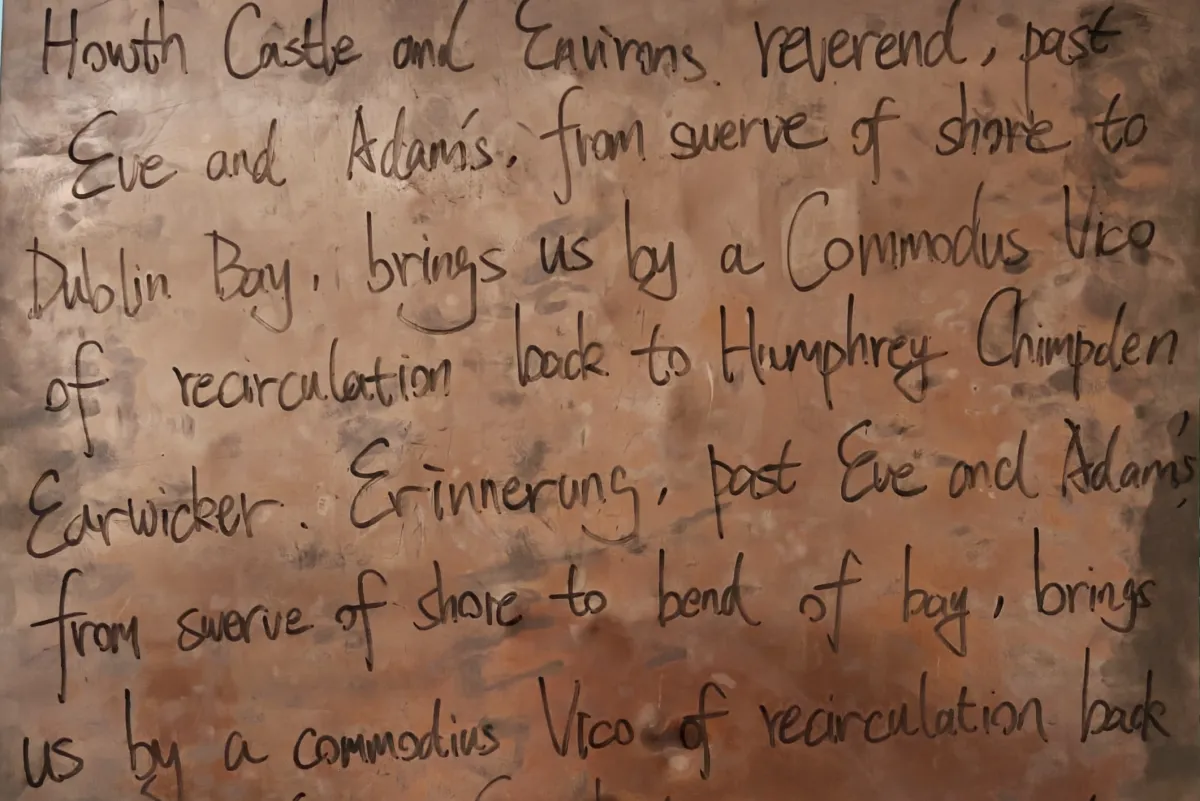 Howth Castle and Environs. reverend, past
Eve and Adam's, from swerve of shore to
Dublin Bay, brings us by a Commodus Vico
of recirculation back to Humphrey Chimpden
Earwicker. Erinnerung, past Eve and Adam's,
from swerve of shore to bend of bay, brings
us by a commodius Vico of recirculation back